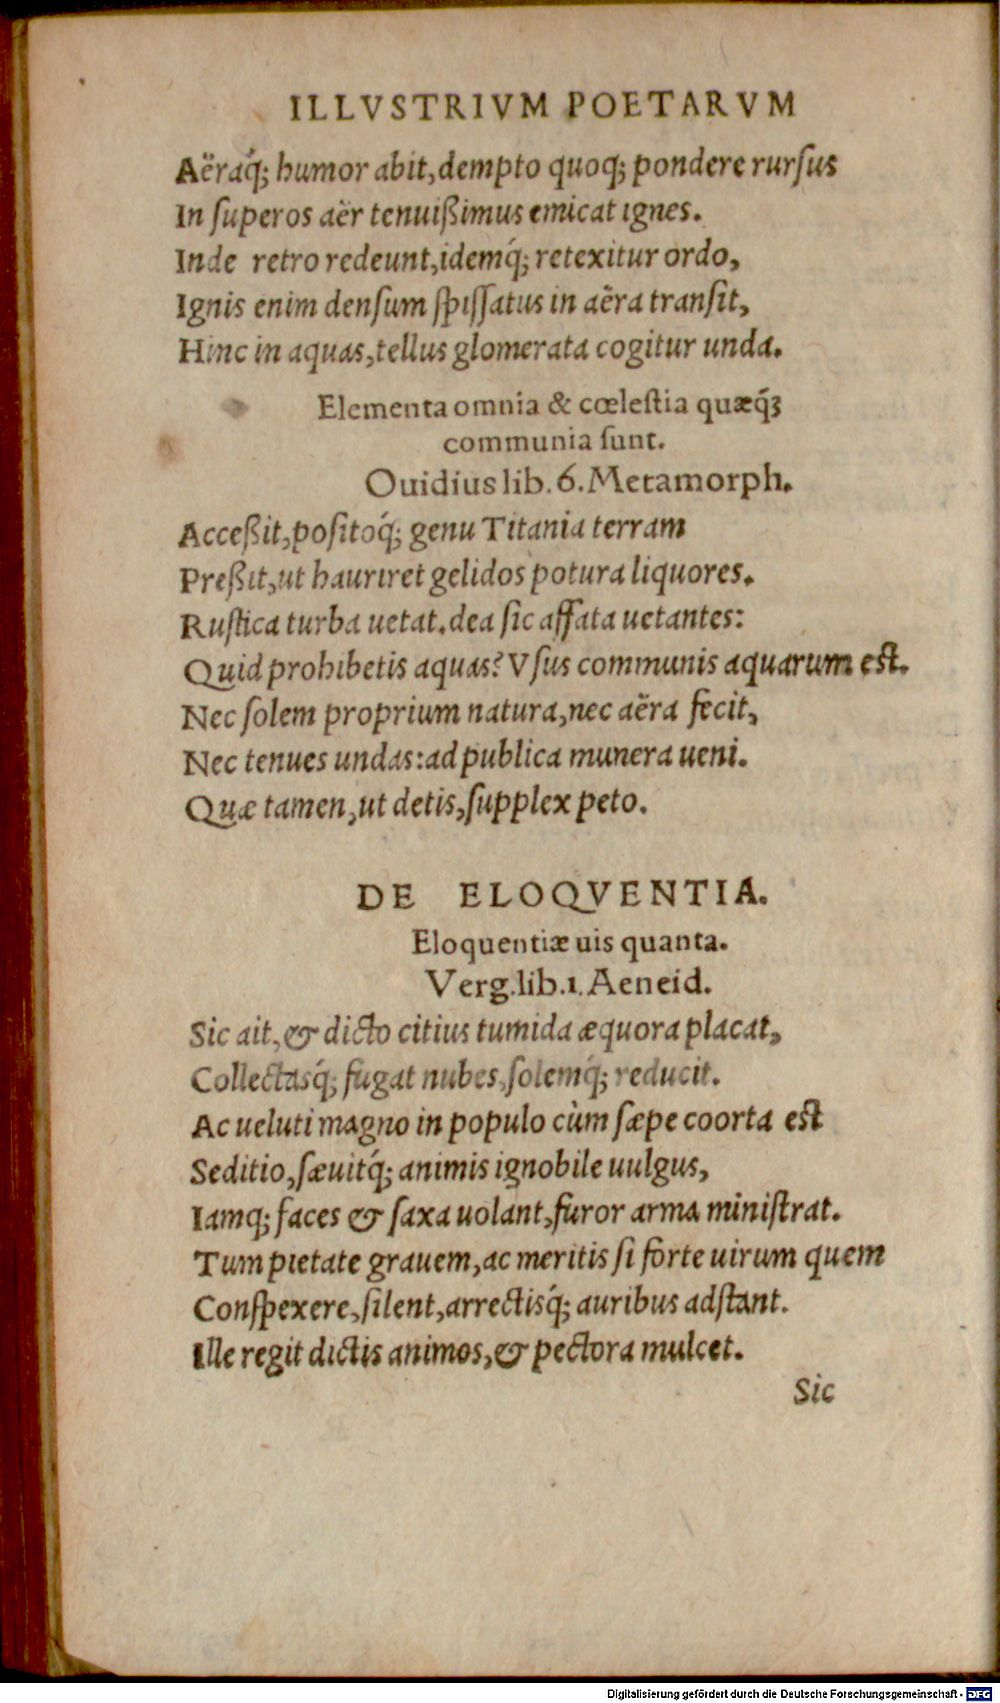 ILLVSTRIVM POETARVM
Aëraq́; humor abit, dempto quoq; pondere rurſus
In ſuperos aër tenuißimus emicat ignes.
Inde retro redeunt, idemq́; retexitur ordo,
Ignis enim denſum ſpiſſatus in aëra tranſit,
Hinc in aquas, tellus glomerata cogitur unda.
Elementa omnia & cœleſtia quæq́ꝫ
communia ſunt.
Ouidius lib. 6. Metamorph.
Acceßit, poſitoq́; genu Titania terram
Preßit, ut hauriret gelidos potura liquores.
Ruſtica turba uetat. dea ſic affata uetantes:
Quid prohibetis aquas? Vſus communis aquarum eſt.
Nec ſolem proprium natura, nec aëra fecit,
Nec tenues undas: ad publica munera ueni.
Quæ tamen, ut detis, ſupplex peto.
DE ELOQVENTIA.
Eloquentiæ uis quanta.
Verg. lib. 1. Aeneid.
Sic ait, & dicto citius tumida æquora placat,
Collectasq́; fugat nubes, ſolemq́; reducit.
Ac ueluti magno in populo cùm ſæpe coorta eſt
Seditio, ſæuitq́; animis ignobile uulgus,
Iamq; faces & ſaxa uolant, furor arma miniſtrat.
Tum pietate grauem, ac meritis ſi forte uirum quem
Conſpexere, ſilent, arrectisq́; auribus adſtant.
Ille regit dictis animos, & pectora mulcet.
Sic
Digitalisierung gefördert durch die Deutsche Forschungsgemeinschaft - DFG